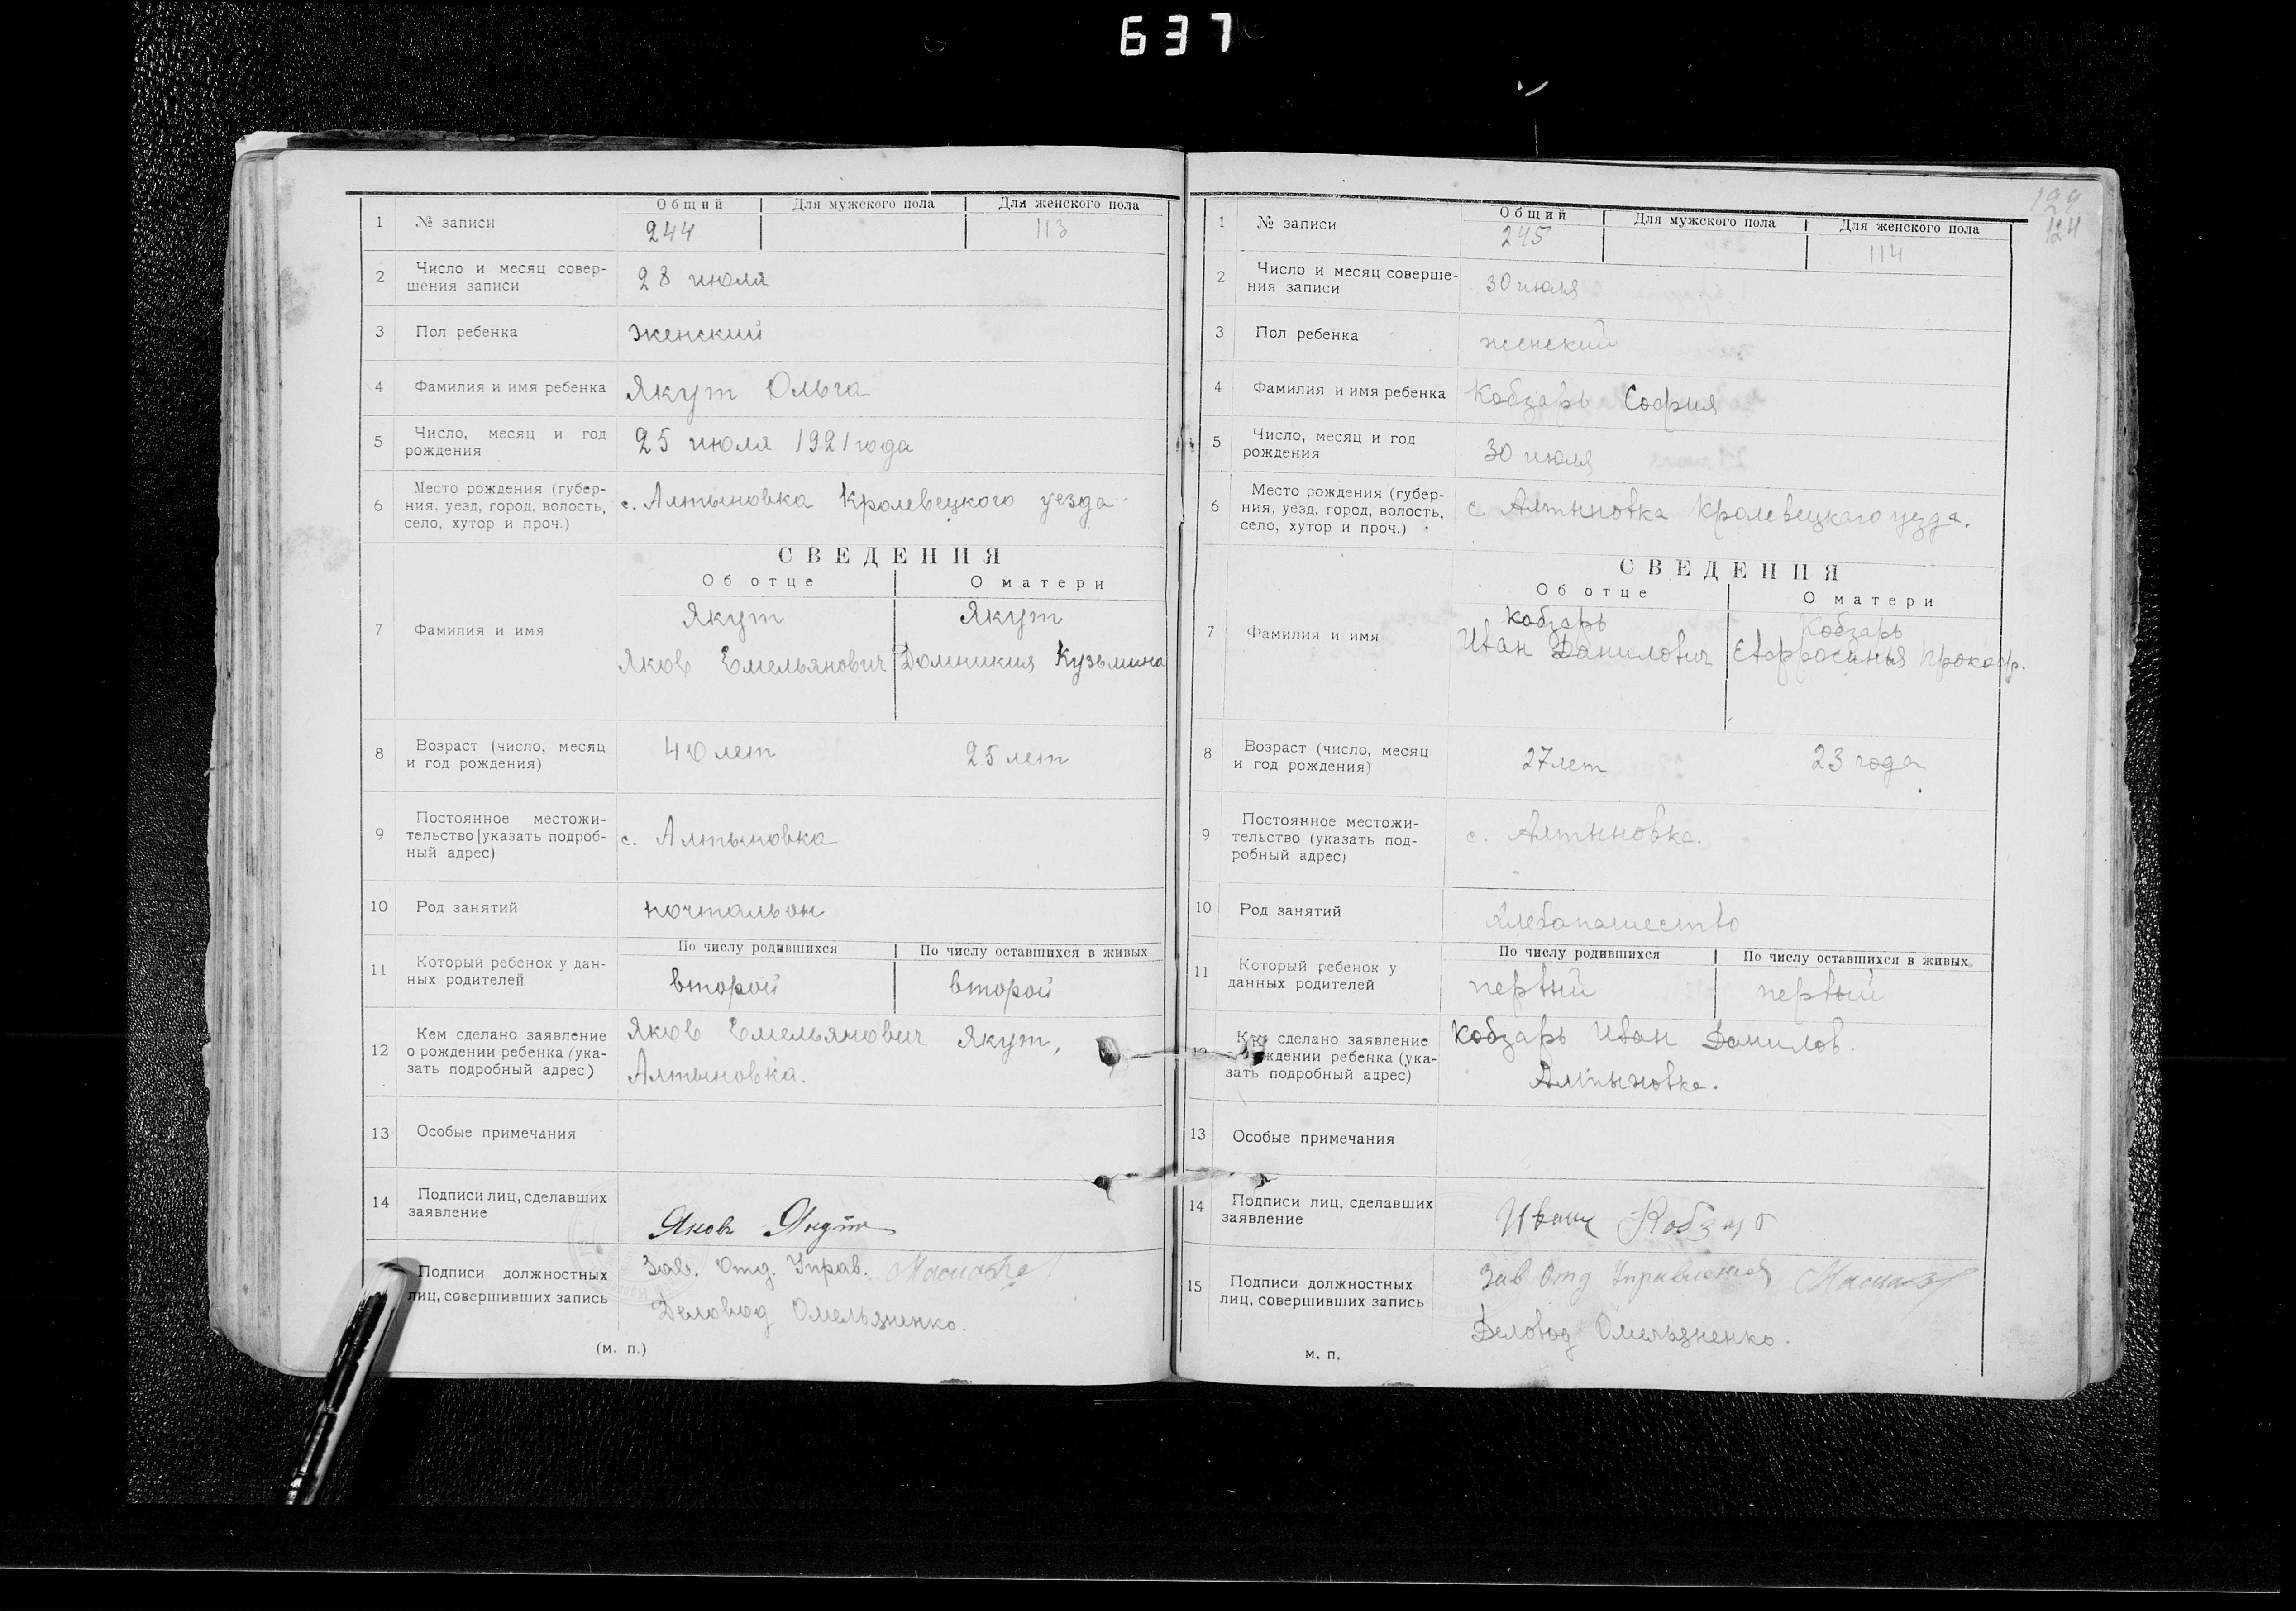 637
Общий Для мужского пола Для женского пола
1 № записи 244 113
2 Число и месяц совер-
шения записи 28 июля
3 Пол ребенка женский
4 Фамилия и имя ребенка Якут Ольга
5 Число, месяц и год
рождения 25 июля 1921 года
6 Место рождения (губер-
ния, уезд, город, волость,
село, хутор и проч.) с. Алтыновка Кролевецкого уезда
СВЕДЕНИЯ
Об отце О матери
7 Фамилия и имя Якут Якут
Яков Емельянович Домникия Кузьмина
8 Возраст (число, месяц
и год рождения) 40 лет 25 лет
9 Постоянное местожи-
тельство [указать подроб-
ный адрес) с. Алтыновка
10 Род занятий почтальон
По числу родившихся По числу оставшихся в живых
11 Который ребенок у дан-
ных родителей второй второй
12 Кем сделано заявление
о рождении ребенка (ука-
зать подробный адрес) Яков Емельянович Якут,
Алтыновка.
13 Особые примечания
14 Подписи лиц, сделавших
заявление Яковъ Якут
Подписи должностных
лиц, совершивших запись Зав. Отд. Управ.
Деловод Омельяненко.
(м. п.)
124
Общий Для мужского пола Для женского пола
1 № записи 245 114
2 Число и месяц соверше-
ния записи 30 июля
3 Пол ребенка женский
4 Фамилия и имя ребенка Кобзарь София
5 Число, месяц и год
рождения 30 июля
6 Место рождения (губер-
ния, уезд, город, волость,
село, хутор и проч.) с Алтыновка Кролевецкаго уезда.
СВЕДЕНИЯ
Об отце О матери
7 Фамилия и имя Кобзарь Кобзарь
Иван Данилович Евфросинья Прокоф.
8 Возраст (число, месяц
и год рождения) 27 лет 23 года
9 Постоянное местожи-
тельство (указать под-
робный адрес) с. Алтыновка.
10 Род занятий хлебопашество
По числу родившихся По числу оставшихся в живых
11 Который ребенок у
данных родителей первый первый
Кем сделано заявление
рождении ребенка (ука-
зать подробный адрес) Кобзарь Иван Данилов.
Алтыновка.
13 Особые примечания
14 Подписи лиц, сделавших
заявление Иван Кобзар
15 Подписи должностных
лиц, совершивших запись Зав Отд Управления
Деловод Омельяненко.
м. п.